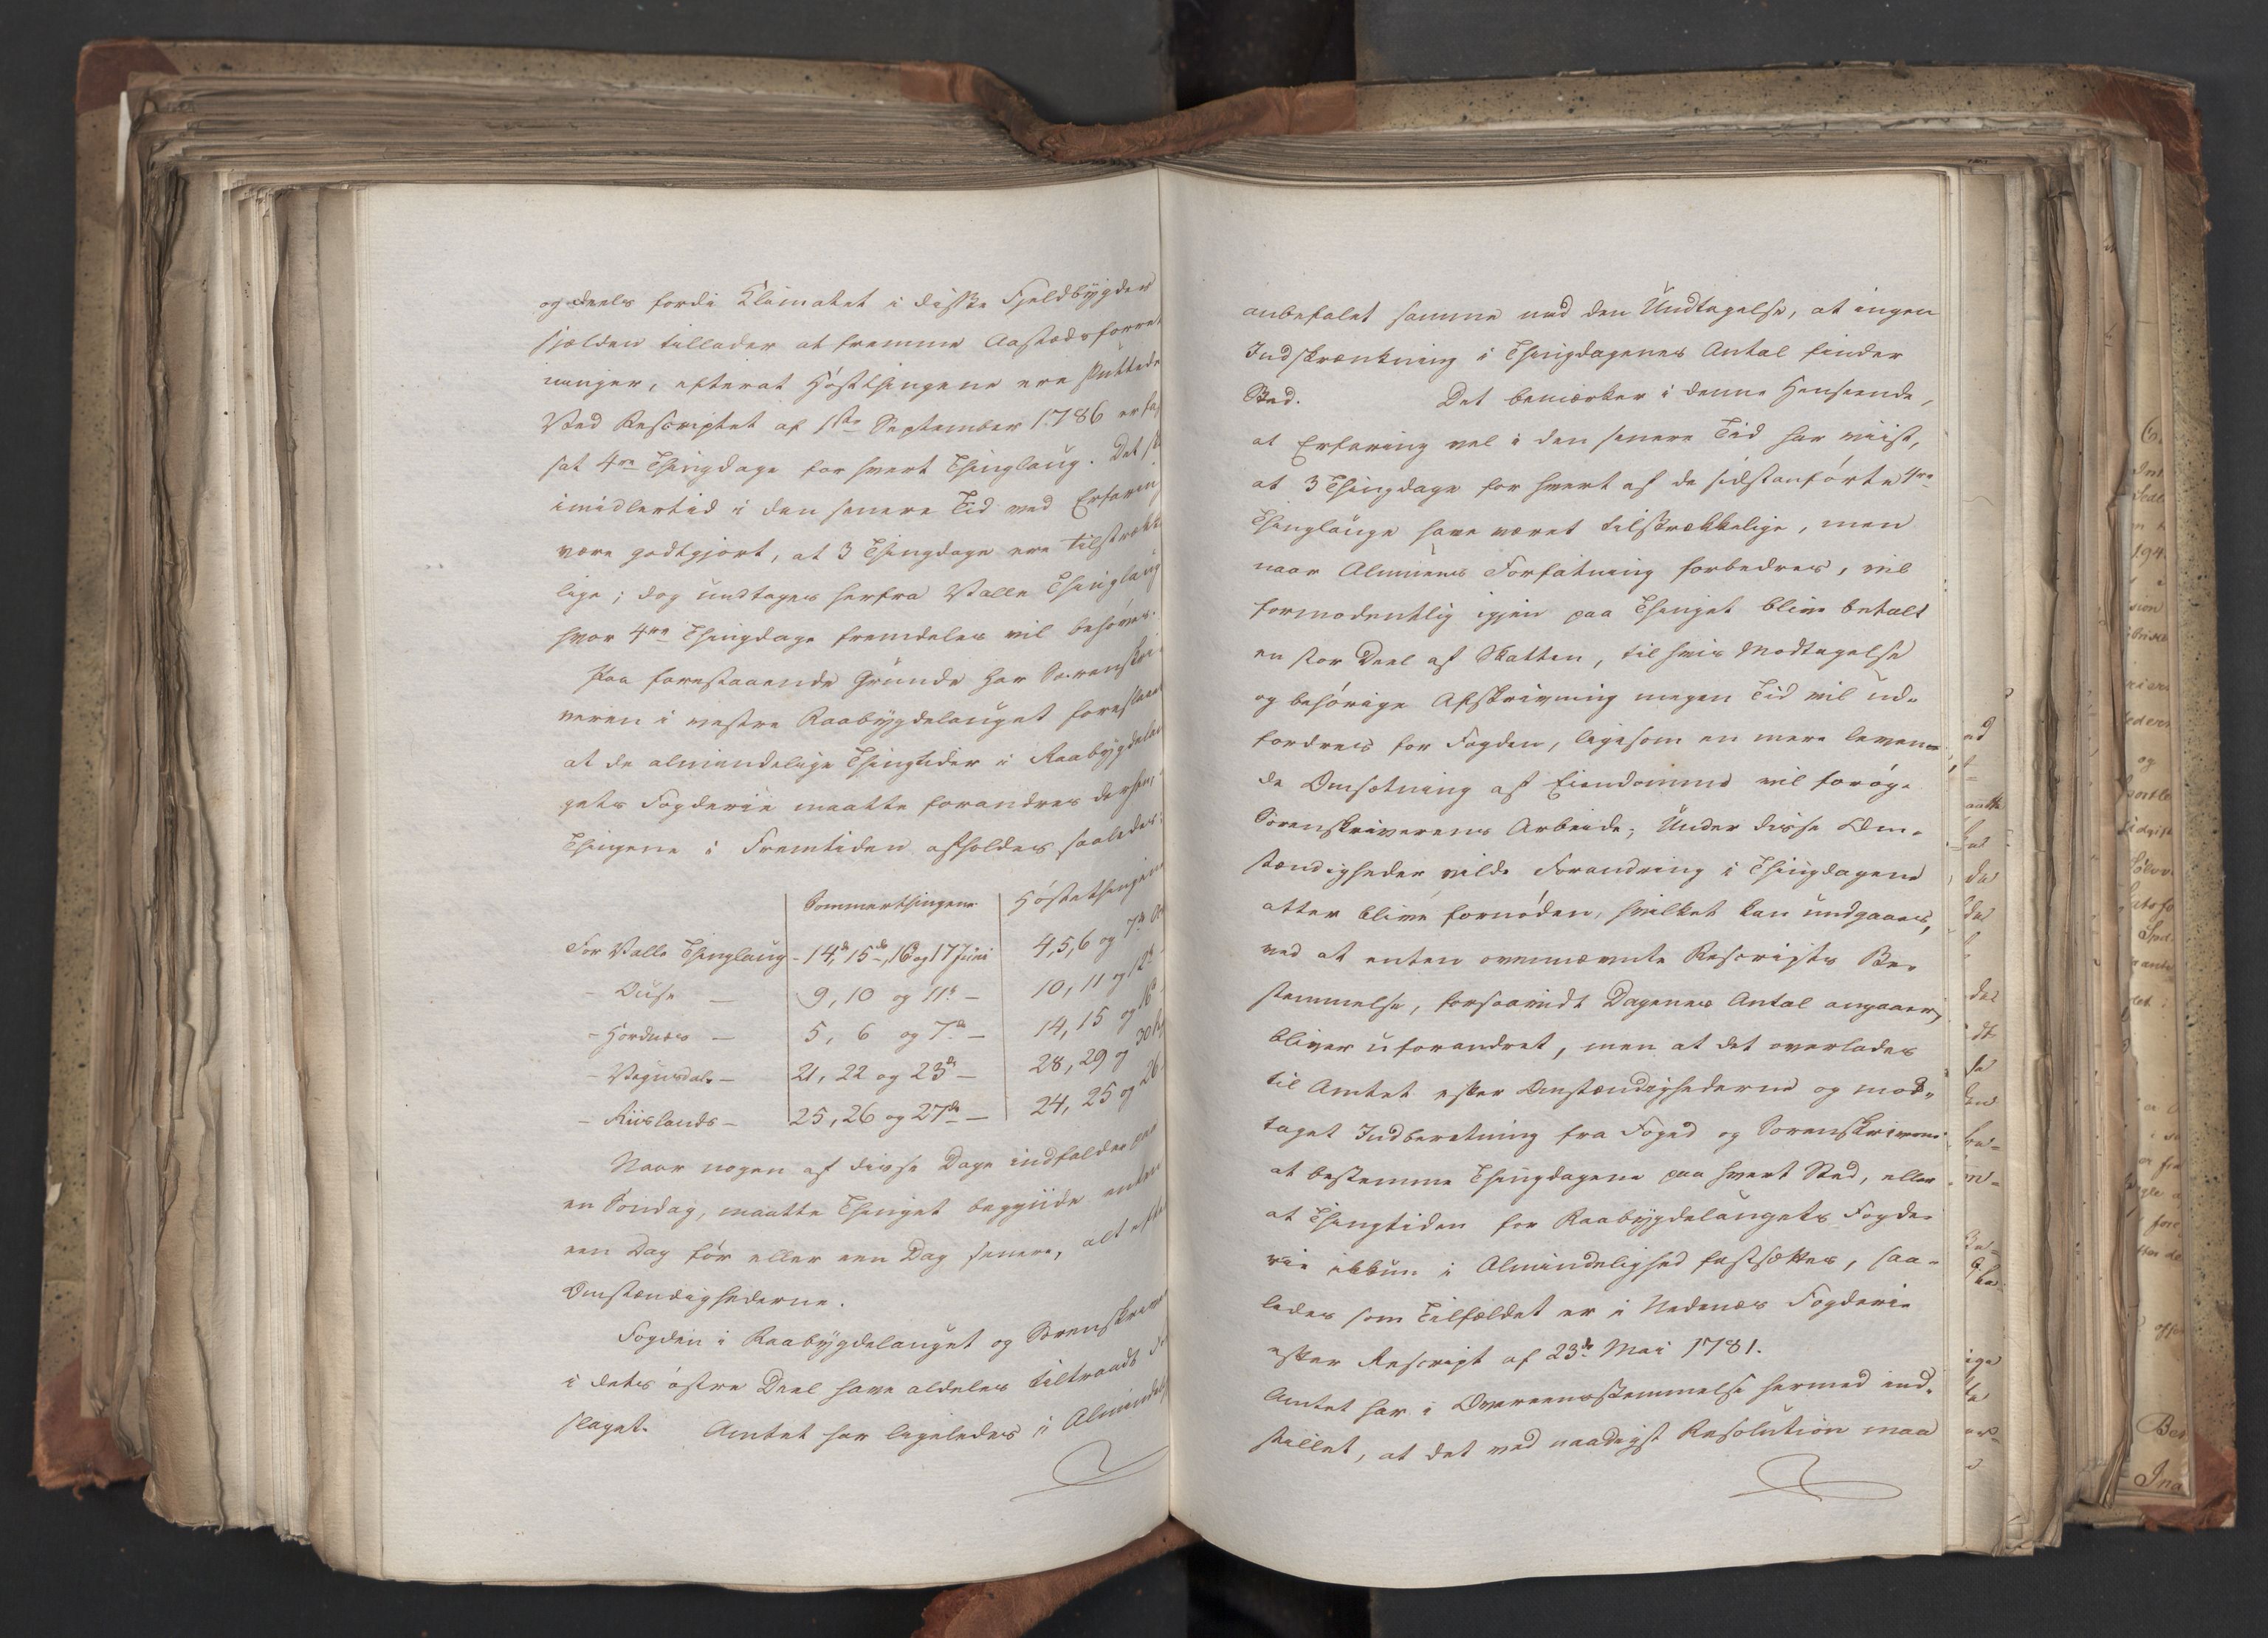 og deels fordi Klimatet i disse Fjeldbygder
sjælden tillader at fremme Aastedsforret
ninger, efterat Høstthingene ere sluttede
Ved Rescriptet af 1ste September 1786 er fast
sat 4re Thingdage for hvert Thinglaug. Det sk
imidlertid i den senere Tid ved Erfaring
være godtgjort, at 3 Thingdage ere tilstrække
lige; dog undtages herfra Valle Thinglaug
hvor 4re Thingdage fremdeles vil behøves.
Paa forestaaende Grunde har Sorenskri-
veren i vestre Raabygdelauget foreslaaet
at de almindelige Thingtider i Raabygdelau
gets Fogderie maatte forandres derhen, at
Thingene i Fremtiden afholdes saaledes:
Sommerthingene Høstethingene
For Valle Thinglaug - 14de, 15de, 16 og 17 Juni 4, 5, 6 og 7de
- Ouse - 9, 10 og 11te - 10, 11 og 12te
- Hordnes - 5, 6 og 7de - 14, 15 og 16de
- Vegusdals - 21, 22 og 23de - 28, 29 og 30te
- Riislands - 25, 26 og 27de - 24, 25 og 26
Naar nogen af disse Dage indfalder paa
en Søndag, maatte Thinget begynde enten
een Dag før eller een Dag senere, alt efter
Omstændighederne.
Fogden i Raabygdelauget og Sorenskriver
i dets østre Deel have aldeles tiltraadt For
slaget. Amtet har ligeledes i Almindelighed
anbefalet samme med den Undtagelse, at ingen
Indskrænkning i Thingdagenes Antal finder
Sted. Det bemærker i denne Henseende,
at Erfaring vel i den senere Tid har viist,
at 3 Thingdage for hvert af de sidstanførte 4re
Thinglauge have været tilstrækkelige, men
naar Almuens Forfatning forbedres, vil
formodentlig igjen paa Thinget blive betalt
en stor Deel af Skatten, til hvis Modtagelse
og behørige Afskrivning megen Tid vil ud-
fordres for Fogden, ligesom en mere leven-
de Omsætning af Eiendomme vil forøge
Sorenskriverens Arbeide; Under disse Om-
stændigheder vilde Forandring i Thingdagene
atter blive fornøden, hvilket kan undgaaes,
ved at enten ovennævnte Rescripts Be-
stemmelse, forsaavidt Dagenes Antal angaaer,
bliver uforandret, men at det overlades
til Amtet efter Omstændighederne og mod-
taget Indberetning fra Foged og Sorenskriveren
at bestemme Thingdagene paa hvert Sted, eller
at Thingtiden for Raabygdelaugets Fogde-
rie ikkun i Almindelighed fastsættes, saa-
ledes som Tilfældet er i Nedenes Fogderie
efter Rescript af 23de Mai 1781.
Amtet har i Overeensstemmelse hermed ind-
stillet, at det ved naadigst Resolution maa